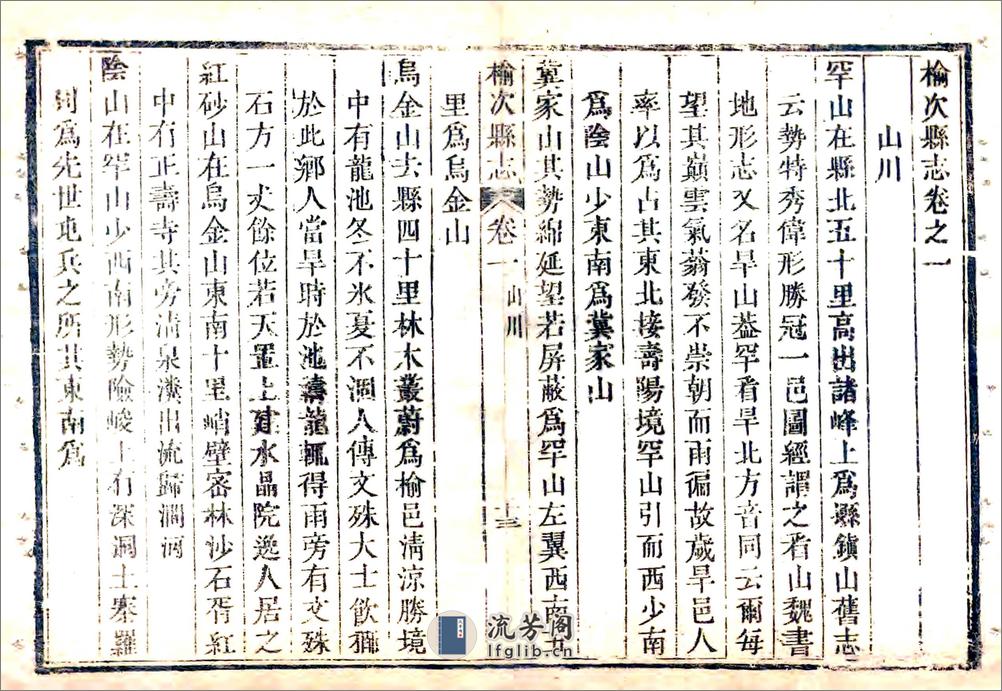 榆次縣志卷之一
山川
罕山在縣北五十里高出諸峰上爲縣鎮山舊志
云勢特秀偉形勝冠一邑圖經謂之看山魏書
地形志又名旱山葢罕看旱北方音同云爾每
望其巔雲氣蓊發不崇朝而雨徧故歲旱邑人
率以爲占其東北接壽陽境罕山引而西少南
爲陰山少東南爲冀家山
冀家山其勢綿延望若屏蔽爲罕山左翼西南十
榆次縣志 卷一 山川 十三
里爲烏金山
烏金山去縣四十里林木叢蔚爲榆邑淸涼勝境
中有龍池冬不氷夏不涸人傳文殊大士飲獵
於此鄉人當旱時於池禱龍輒得雨旁有文殊
石方一丈餘位若天置上建水晶院逸人居之
紅砂山在烏金山東南十里峭壁密林沙石胥紅
中有正壽寺其旁淸泉瀵出流歸澗河
陰山在罕山少西南形勢險峻上有深洞土寨羅
列爲先世屯兵之所其東南爲
流芳阁
lfglib.cn